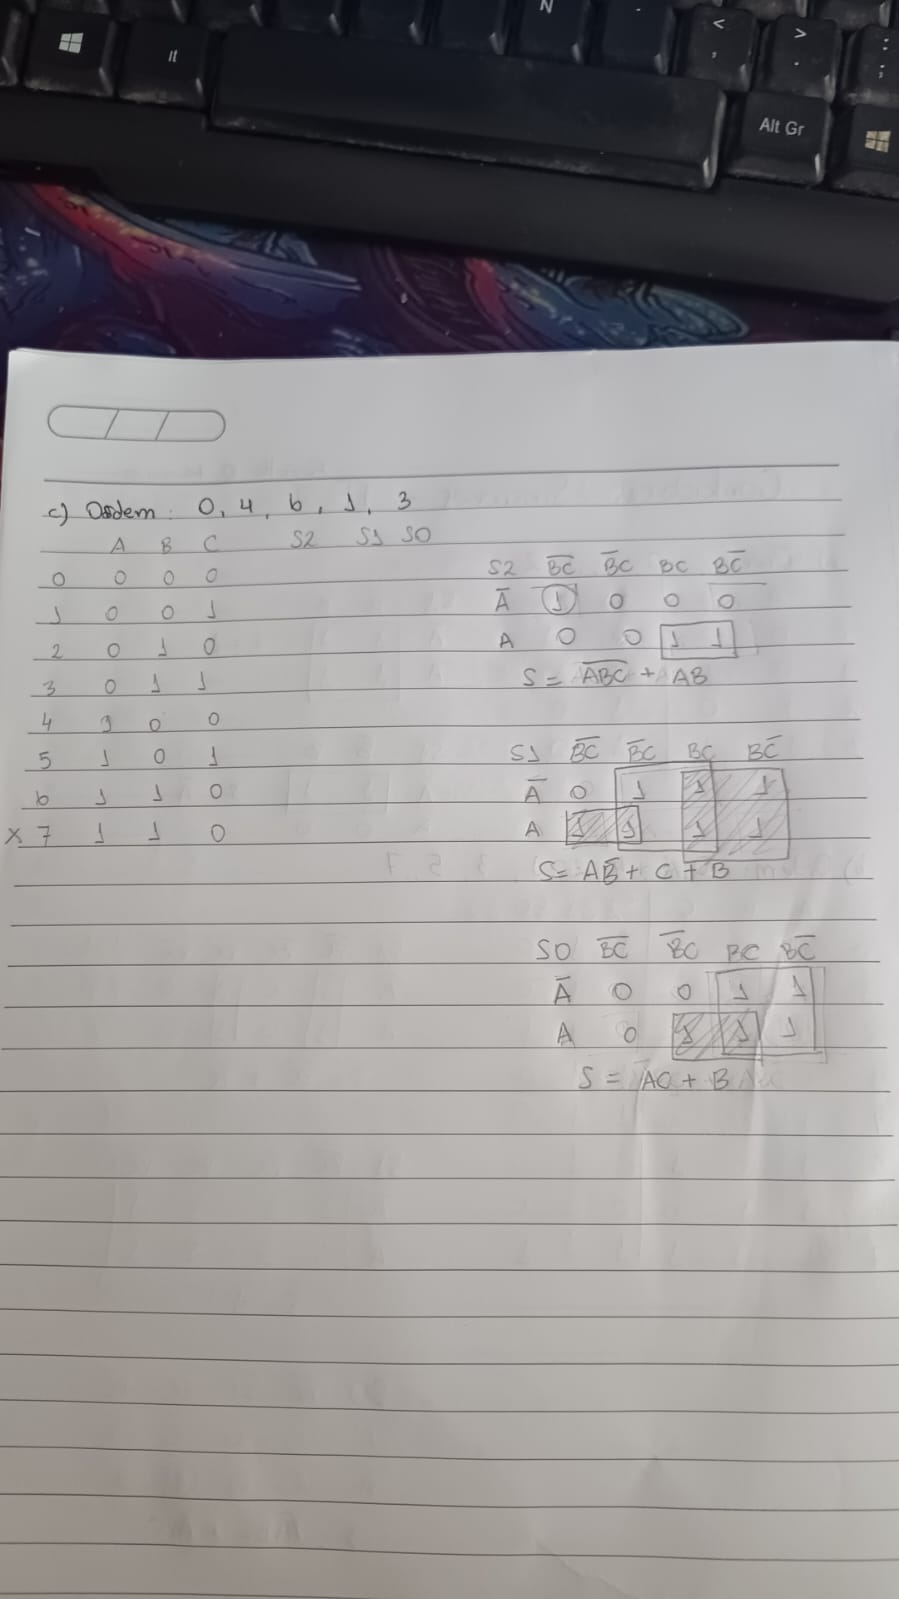 N
<
,
>
.
:
;
Alt Gr
c) Ordem: 0, 4, 6, 1, 3
A B C S2 S1 S0
0 0 0 0
1 0 0 1
2 0 1 0
3 0 1 1
4 1 0 0
5 1 0 1
6 1 1 0
x 7 1 1 0
S2 B̅C̅ B̅C BC BC̅
A̅ 1 0 0 0
A 0 0 1 1
S = A̅B̅C̅ + AB
S1 B̅C̅ B̅C BC BC̅
A̅ 0 1 1 1
A 1 1 1 1
S = AB̅ + C + B
S0 B̅C̅ B̅C BC BC̅
A̅ 0 0 1 1
A 0 1 1 1
S = AC + B